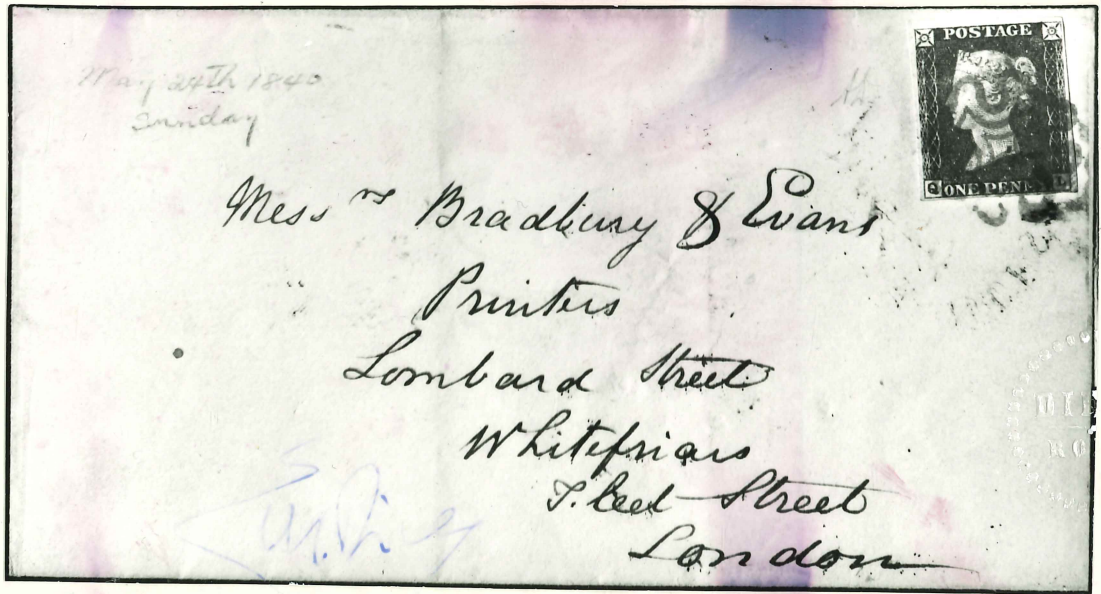 May 24th 1840
Sunday
POSTAGE
Q ONE PENNY L
Mess rs Bradbury & Evans
Printers
Lombard Street
Whitefriars
Fleet Street
London